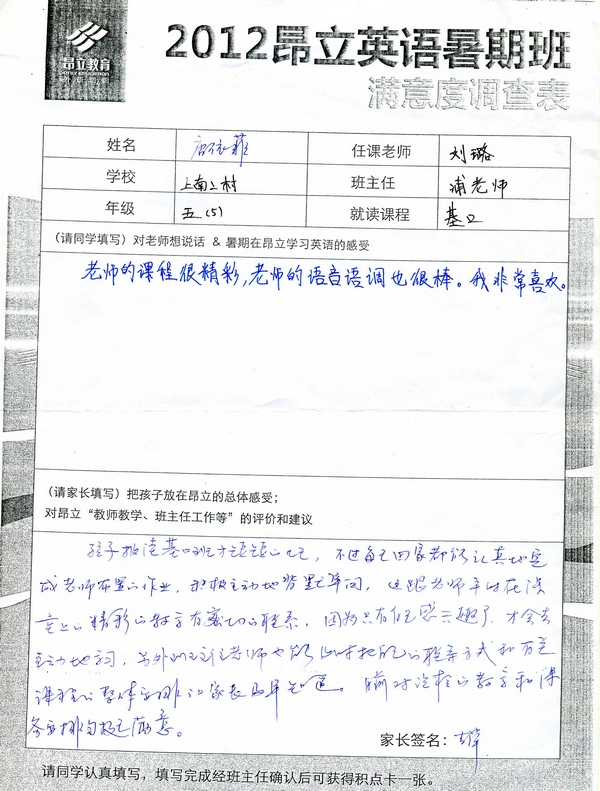 昂立教育
ONLY EDUCATION
2012昂立英语暑期班
满意度调查表
姓名 唐依菲 任课老师 刘璐
学校 上南二村 班主任 浦老师
年级 五(5) 就读课程 基口
(请同学填写)对老师想说话 & 暑期在昂立学习英语的感受
老师的课程很精彩,老师的语音语调也很棒。我非常喜欢。
(请家长填写)把孩子放在昂立的总体感受;
对昂立“教师教学、班主任工作等”的评价和建议
孩子报读基口班才短短,不过每天回家都能认真地完
成老师布置的作业,积极主动地背默单词,这跟老师平时在课
堂上的精彩的教学有密切的联系,因为只有自己感兴趣了,才会去
主动地,另外班主任老师也能的联系方式和
课程的整体安排让家长。的教育和课
务安排均极已满意。
家长签名:
请同学认真填写,填写完成经班主任确认后可获得积点卡一张。